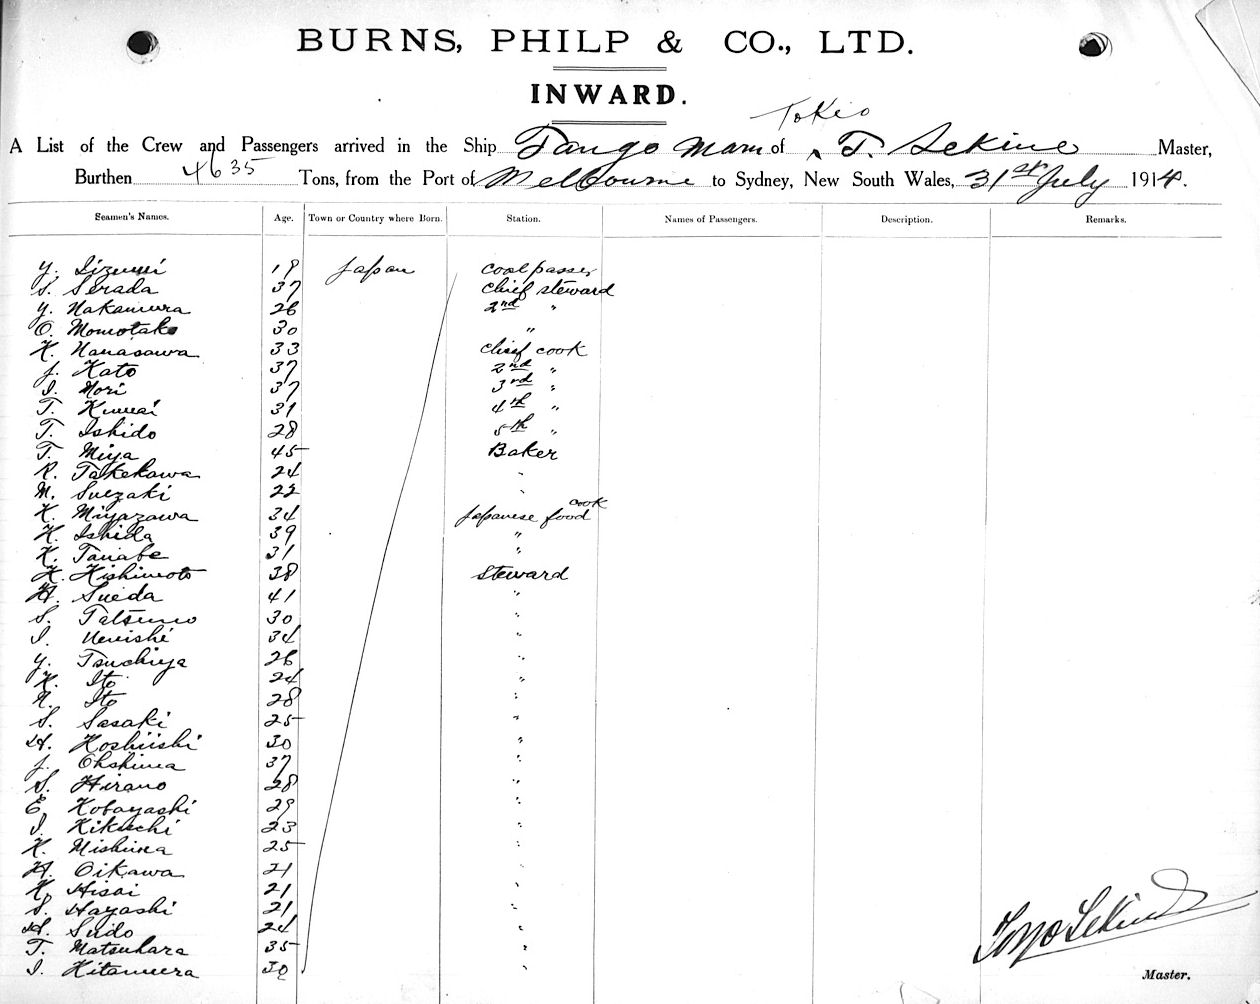 BURNS, PHILP & CO., LTD.
INWARD.
Tokio
A List of the Crew and Passengers arrived in the Ship Tango Maru of T. Sekine Master,
Burthen 4635 Tons, from the Port of Melbourne to Sydney, New South Wales, 31st July 1914.
Seamen's Names. Age. Town or Country where Born. Station. Names of Passengers. Description. Remarks.
Y. Iizumi 19 Japan coal passer
S. Serada 37 chief steward
Y. Nakamura 26 2nd "
O. Momotake 30 "
K. Nanasawa 33 chief cook
J. Kato 37 2nd "
I. Mori 37 3rd "
T. Kumai 31 4th "
T. Ishido 28 5th "
T. Miya 45 Baker
R. Takekawa 24 "
M. Suezaki 22 "
K. Miyazawa 34 Japanese food cook
K. Ishida 39 "
K. Tanabe 31 "
K. Kishimoto 38 Steward
H. Sueda 41 "
S. Tatsuno 30 "
I. Uenishi 34 "
Y. Tsuchiya 26 "
K. Ito 24 "
R. Ito 28 "
S. Sasaki 25 "
H. Koshiishi 30 "
J. Ohshima 37 "
S. Hirano 28 "
E. Kobayashi 29 "
I. Kikuchi 23 "
K. Mishima 25 "
H. Oikawa 21 "
K. Hisai 21 "
S. Hayashi 21 "
H. Sudo 24 "
T. Matsuhara 35 "
I. Kitamura 30 "
Tomo Sekine
Master.